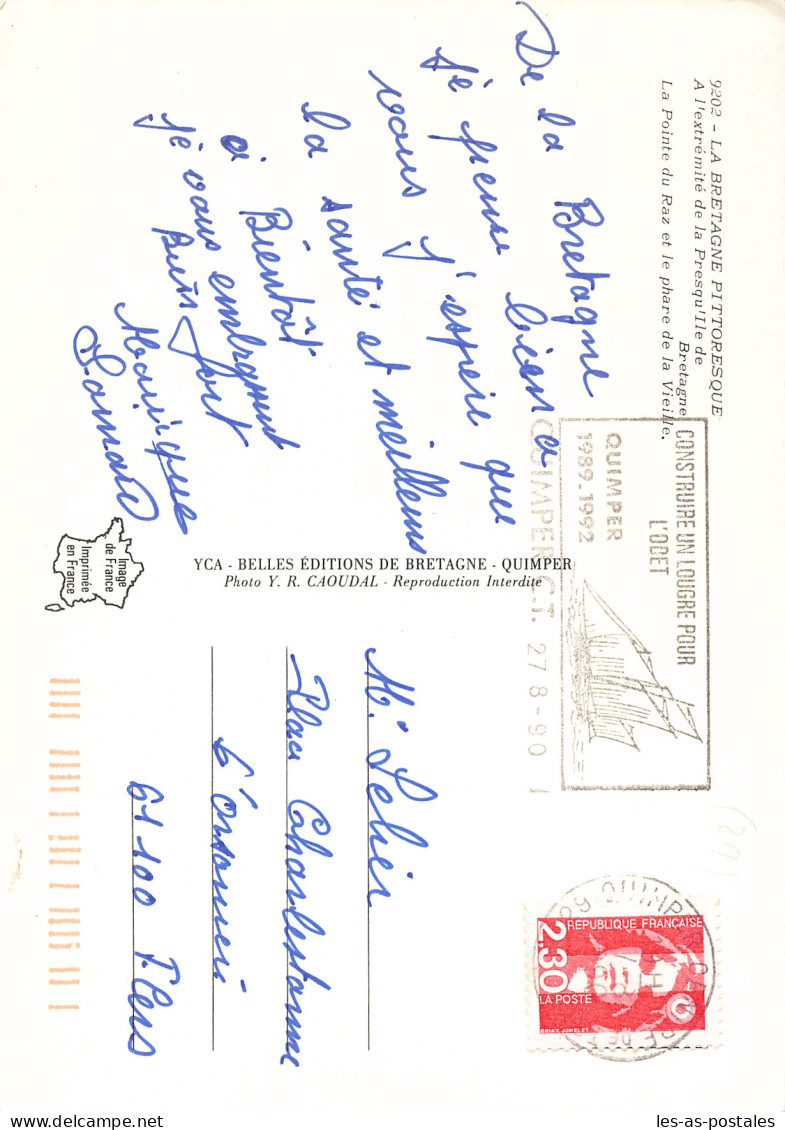 9202 - LA BRETAGNE PITTORESQUE
A l'extrémité de la Presqu'Ile de
Bretagne
La Pointe du Raz et le phare de la Vieille.
De la Bretagne
je pense bien a
vous j'espere que
la santé est meilleure
a Bientôt
je vous embrassent
Bien fort
YCA - BELLES ÉDITIONS DE BRETAGNE - QUIMPER
Photo Y. R. CAOUDAL - Reproduction Interdite
Image
de France
Imprimée
en France
CONSTRUIRE UN LOUGRE POUR
L'ODET
QUIMPER
1989-1992
QUIMPER C.T. 27 8-90
29 QUIMPER
REPUBLIQUE FRANÇAISE
2,30
LA POSTE
BRIAT JUMELET
(29)
61100 Flers
les-as-postales